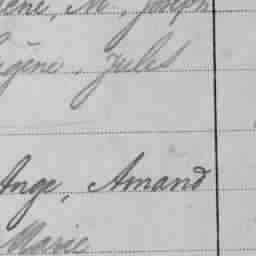 ène, M., Joseph
gène, Jules
Ange, Amand
Marie